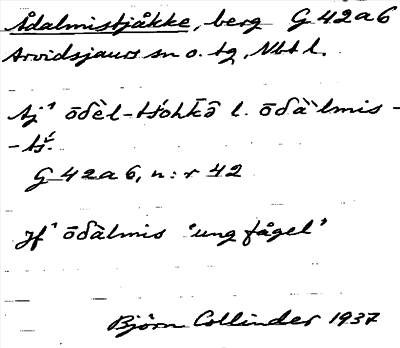 Ådalmistjåkke, berg G 42 a 6
Arvidsjaurs sn o. tg, Nbt l.
ōδèl- l. ōδàlmis -
G 42 a 6, n:r 42
Jf ōδàlmis 'ung fågel'
Björn Collinder 1937